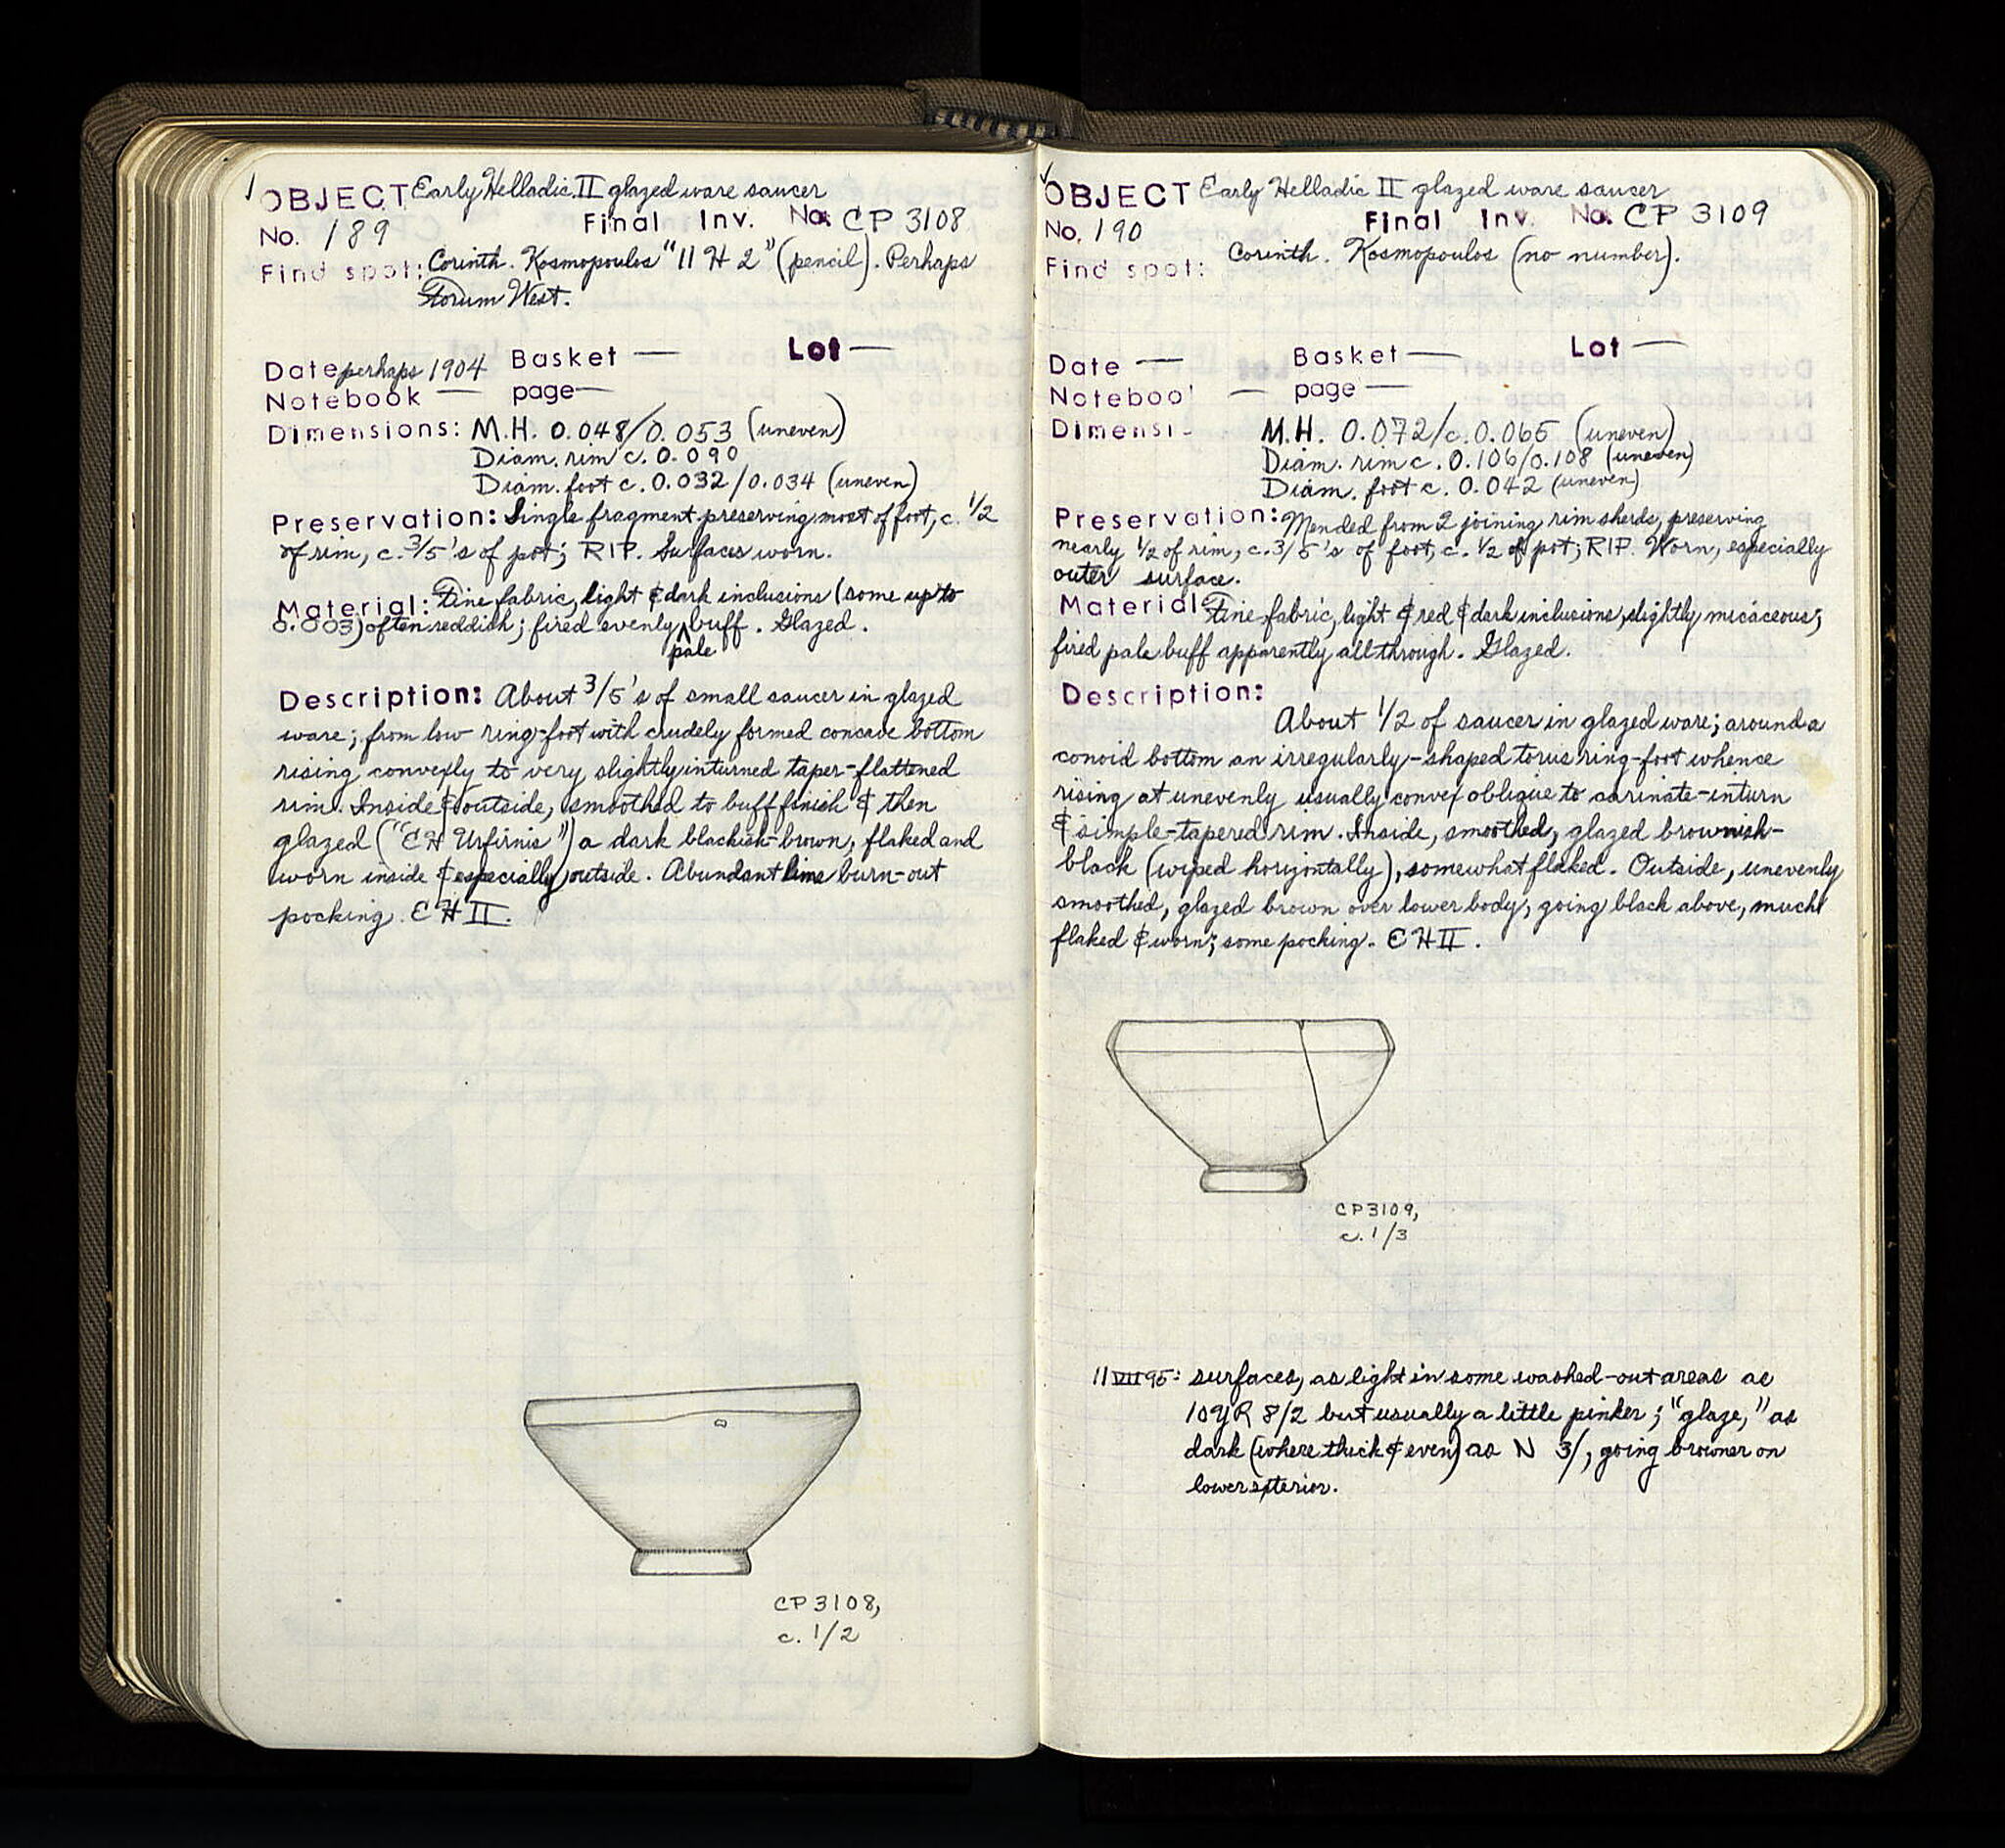 OBJECT Early Helladic II glazed ware saucer
No. 189 Final Inv. No. CP 3108
Find spot: Corinth. Kosmopoulos "11 H 2" (pencil). Perhaps
Forum West.
Date perhaps 1904 Basket — Lot —
Notebook — page —
Dimensions: M.H. 0.048/0.053 (uneven)
Diam. rim c. 0.090
Diam. foot c. 0.032/0.034 (uneven)
Preservation: Single fragment preserving most of foot, c. 1/2
of rim, c. 3/5's of pot; RIP. Surfaces worn.
Material: Fine fabric, light & dark inclusions (some up to
0.003) often reddish; fired evenly ^ buff. Glazed.
pale
Description: About 3/5's of small saucer in glazed
ware; from low ring-foot with crudely formed concave bottom
rising convexly to very slightly inturned taper-flattened
rim. Inside & outside, smoothed to buff finish & then
glazed ("EH Urfirnis") a dark blackish-brown, flaked and
worn inside & especially outside. Abundant lime burn-out
pocking. EH II.
CP 3108,
c. 1/2
OBJECT Early Helladic II glazed ware saucer
No. 190 Final Inv. No. CP 3109
Find spot: Corinth. Kosmopoulos (no number).
Date — Basket — Lot —
Noteboo — page —
Dimensi M.H. 0.072/c. 0.065 (uneven)
Diam. rim c. 0.106/0.108 (uneven)
Diam. foot c. 0.042 (uneven)
Preservation: Mended from 2 joining rim sherds, preserving
nearly 1/2 of rim, c. 3/5's of foot, c. 1/2 of pot; RIP. Worn, especially
outer surface.
Material: Fine fabric, light & red & dark inclusions, slightly micaceous;
fired pale buff apparently all through. Glazed.
Description:
About 1/2 of saucer in glazed ware; around a
conoid bottom an irregularly-shaped torus ring-foot whence
rising at unevenly usually convex oblique to carinate-inturn
& simple-tapered rim. Inside, smoothed, glazed brownish-
black (wiped horizontally), somewhat flaked. Outside, unevenly
smoothed, glazed brown over lower body, going black above, much
flaked & worn; some pocking. EH II.
CP3109,
c. 1/3
11 VII 95: surfaces, as light in some washed-out areas as
10YR 8/2 but usually a little pinker; "glaze," as
dark (where thick & even) as N 3/, going browner on
lower exterior.